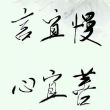 言宜慢
心宜善